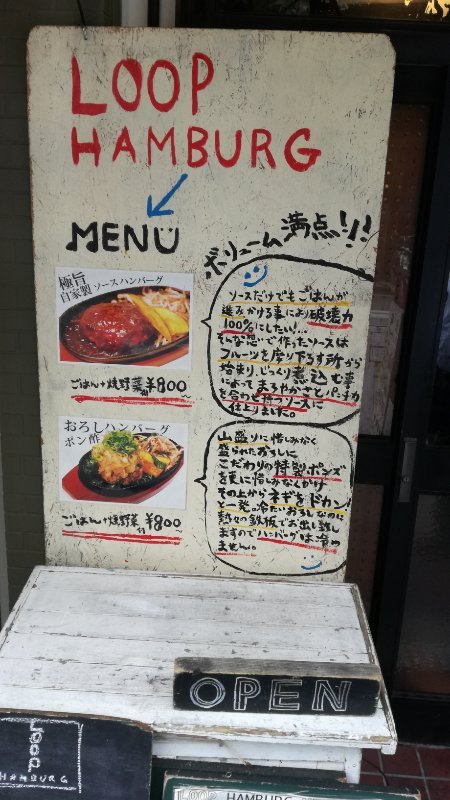 LOOP
HAMBURG
MENU
ボリューム満点!!
極旨
自家製ソースハンバーグ
ごはん+焼野菜付¥800
ソースだけでもごはんが
進みかける事により破壊力
100%にしたい...
そんな想いで作ったソースは
フルーツを摩り下ろす所から
始まり、じっくり煮込む事
によってまろやかさとパンチ力
を合わせ持つソースに
仕上りました。
おろしハンバーグ
ポン酢
ごはん+焼野菜付¥800
山盛りに惜しみなく
盛られたおろしに
こだわりの特製ポンズ
を更に惜しみなくかけ
その上からネギをドカン!
と一発。冷たいおろしなのに
熱々の鉄板でお出し致し
ますのでハンバーグは冷め
ません。
OPEN
LOOP
HAMBURG
LOOP HAMBURG